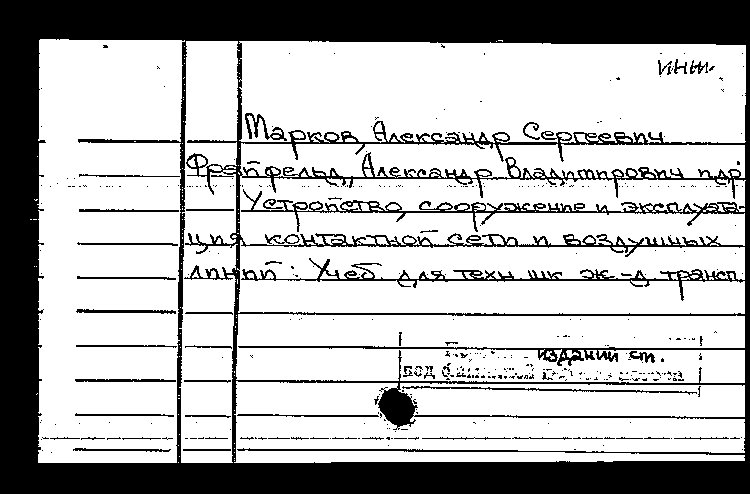 инж.
Марков, Александр Сергеевич
Фрайфельд, Александр Владимирович и др
Устройство, сооружение и эксплуата-
ция контактной сети и воздушных
линий: Учеб для техн шк ж-д трансп.
изданий см.
под фамилией автора